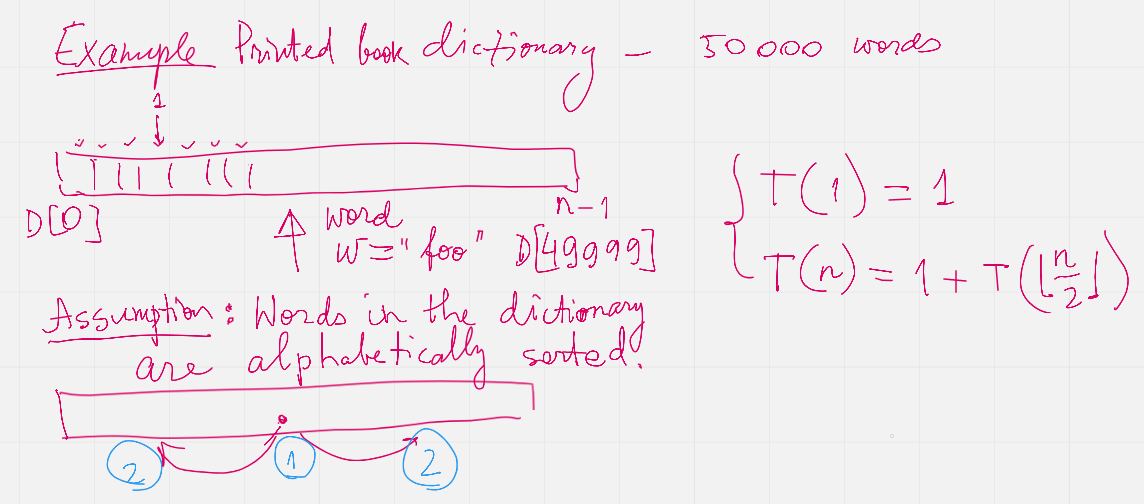 Example Printed book dictionary – 50000 words
1
D[0]
n-1
word
w="foo" D[49999]
T(1) = 1
T(n) = 1 + T(⌊n/2⌋)
Assumption: Words in the dictionary
are alphabetically sorted.
2 1 2